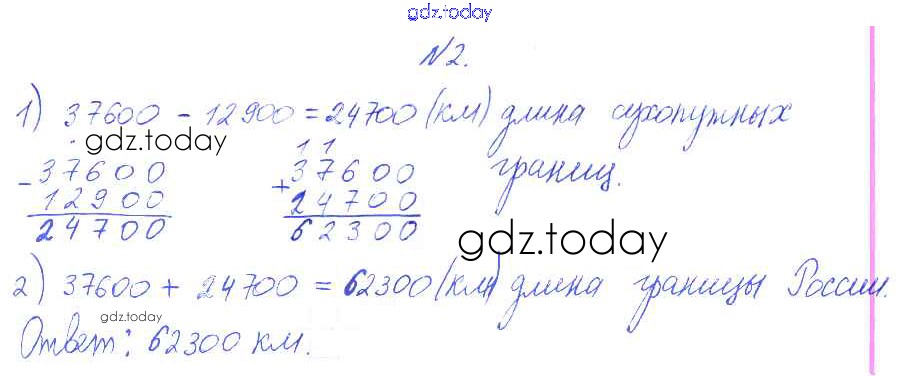 gdz.today
№2.
1) 37600 - 12900 = 24700 (км) длина сухопутных
gdz.today
границ.
- 37600
12900
24700
+ 11
37600
24700
62300
gdz.today
2) 37600 + 24700 = 62300 (км) длина границы России.
gdz.today
Ответ: 62300 км.